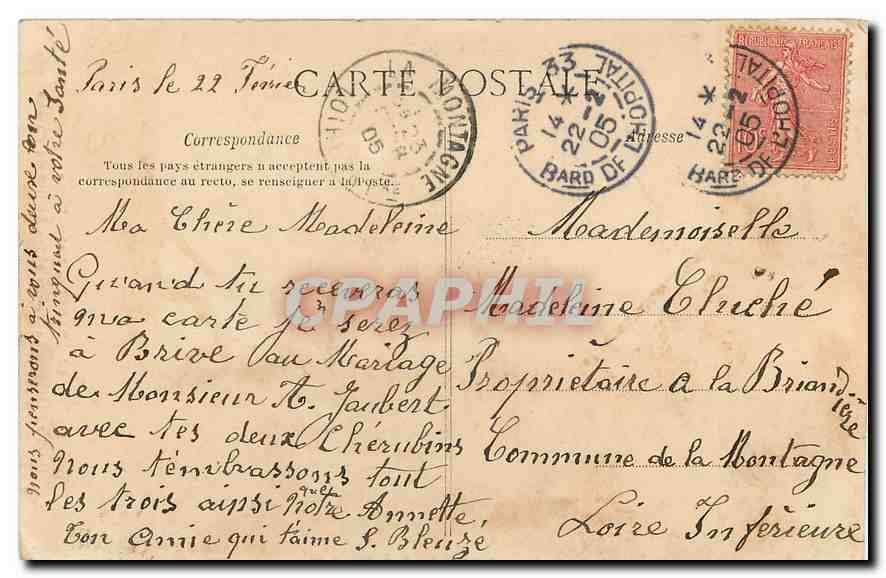 Paris le 22 Février
CARTE POSTALE
Correspondance
Adresse
Tous les pays étrangers n'acceptent pas la
correspondance au recto, se renseigner à la Poste.
LA MONTAGNE
23
05
PARIS 33
14 *
22 - 2
05
BARD DE L'HOPITAL
PARIS 33
14 *
22 - 2
05
BARD DE L'HOPITAL
REPUBLIQUE FRANÇAISE
Ma Chère Madeleine
Quand tu receveras
ma carte je serez
à Brive au Mariage
de Monsieur A. Jaubert
avec tes deux Chérubins
nous t'embrassons tout
les trois ainsi que notre Annette
Ton Amie qui t'aime S. Bleuzé
nous penserons à vous deux en
trinquant à votre Santé
Mademoiselle
Madeleine Cluché
Propriétaire a la Briandière
Commune de la Montagne
Loire Inférieure
CPAPHIL